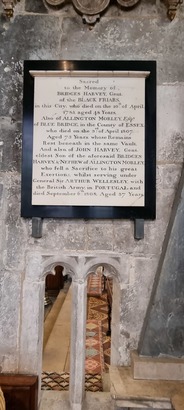 Sacred
to the Memory of
BRIDGES HARVEY, Gent.
of the BLACK FRIARS,
in this City, who died on the of April,
aged 48 Years.
Also of ALLINGTON MORLEY, Esqr.
of BLUE BRIDGE, in the County of ESSEX
who died on the of April 1807.
Aged 72 Years whose Remains
Rest beneath in the same Vault.
And also of JOHN HARVEY, Gent.
oldest Son of the aforesaid BRIDGES
HARVEY & NEPHEW of ALLINGTON MORLEY
who fell a Sacrifice to his great
Exertions, whilst serving under
General Sir ARTHUR WELLESLEY, with
the British Army, in PORTUGAL; and
died September 1808. Aged 27 Years.